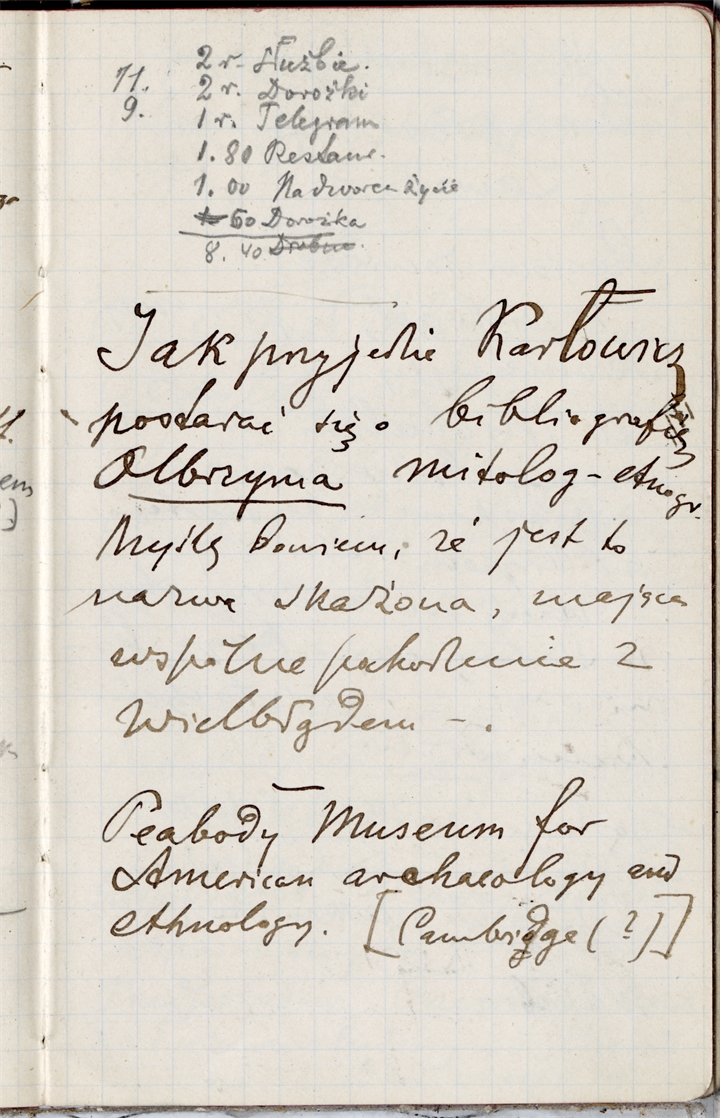 2 r. Służbie.
11. 2 r. Dorożki
9. 1 r. Telegram
1.80 Restaur.
1.00 Na dworcu życie
60 Dorożka
8.40 Drobne
Jak przyjedzie Karłowicz
postarać się o bibliografię
Olbrzyma mitolog-etnogr.
Myślę bowiem, że jest to
nazwa skażona, mająca
wspólne pochodzenie z
wielbłądem -.
Peabody Museum for
American archaeology and
ethnology. [Cambridge (?)]